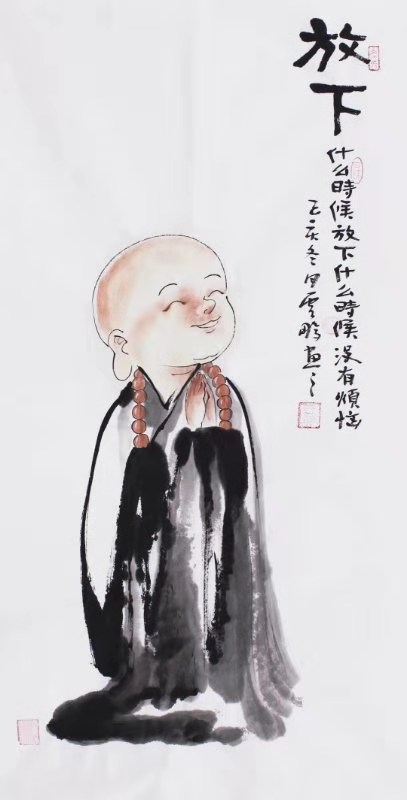 放下
什么時候放下什么時候没有煩惱
己亥冬月雲鹏畫之